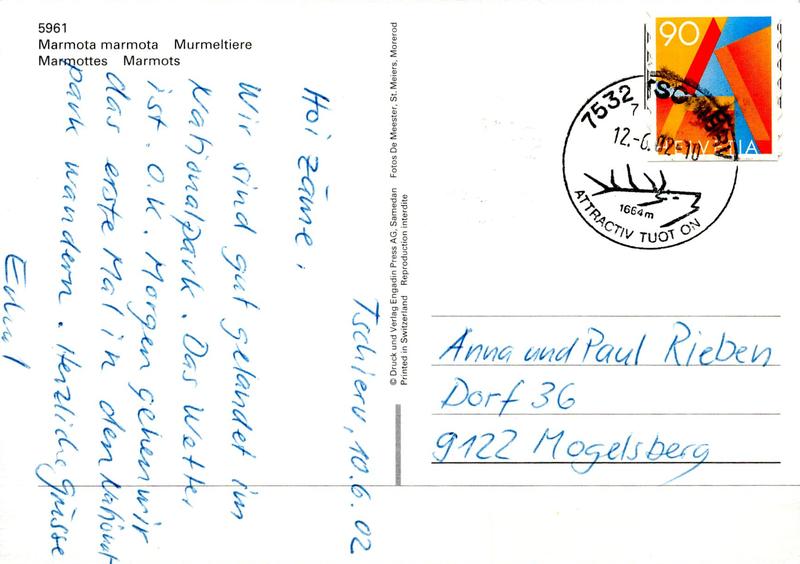 5961
Marmota marmota Murmeltiere
Marmottes Marmots
Tschierv, 10.6.02
Hoi zäme,
Wir sind gut gelandet im
Nationalpark. Das Wetter
ist o.k. Morgen gehen wir
das erste Mal in den National-
park wandern. Herzliche Grüsse
© Druck und Verlag Engadin Press AG, Samedan Fotos De Meester, St. Meiers, Morerod
Printed in Switzerland Reproduction interdite
90
HELVETIA
7532 TSCHIERV
12.-6.02-10
1664m
ATTRACTIV TUOT ON
Anna und Paul Rieben
Dorf 36
9122 Mogelsberg